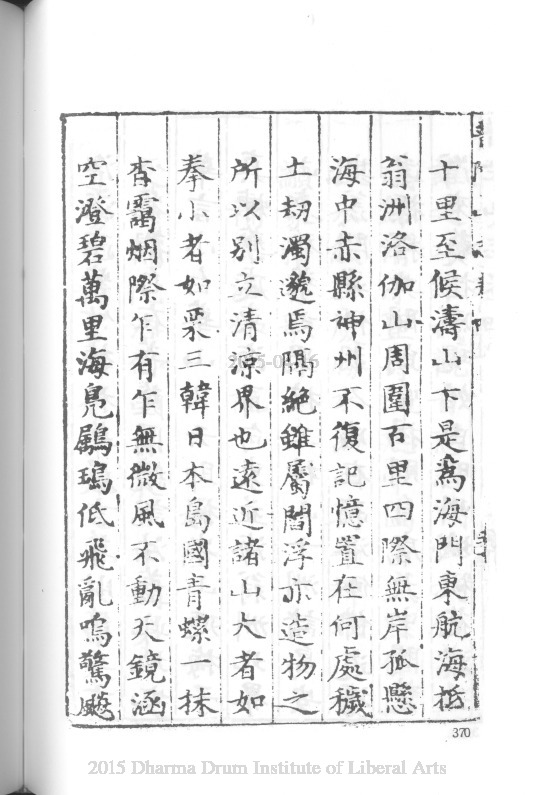 十里至候濤山下是爲海門東航海抵
翁洲洛伽山周圍百里四際無岸孤懸
海中赤縣神州不復記憶置在何處穢
土刼濁邈焉隔絶雖屬閻浮亦造物之
所以别立清凉界也遠近諸山大者如
拳小者如粟三韓日本島國青螺一抹
杳靄烟際乍有乍無微風不動天鏡涵
空澄碧萬里海鳬鸕鶿低飛亂鳴驚飈
370
2015 Dharma Drum Institute of Liberal Arts